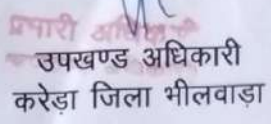 प्रभारी अधिकारी
उपखण्ड अधिकारी
करेड़ा जिला भीलवाड़ा